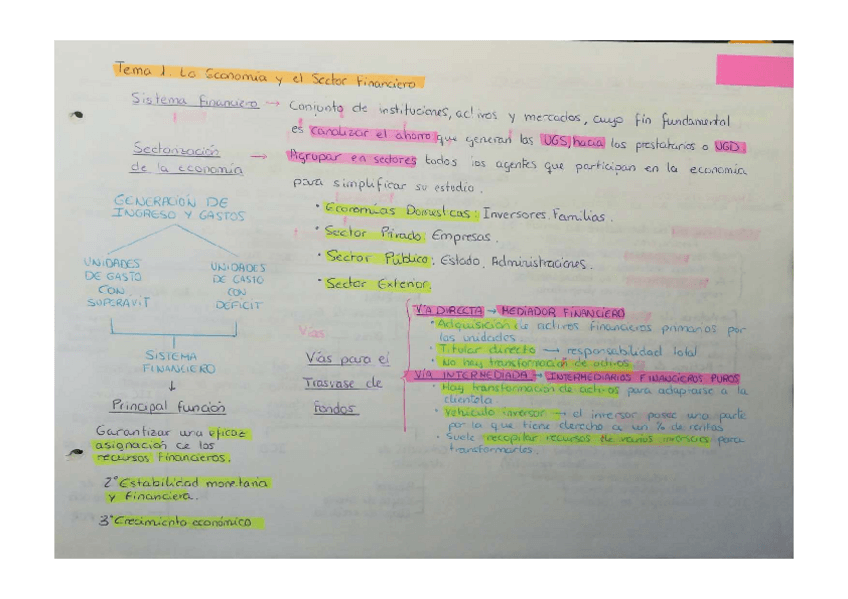 Tema 1. La Economía y el Sector Financiero
Sistema Financiero → Conjunto de instituciones, activos y mercados, cuyo fin fundamental
es canalizar el ahorro que generan las UGS, hacia los prestatarios o UGD.
Sectorización
de la economía → Agrupar en sectores todos los agentes que participan en la economía
para simplificar su estudio.
• Economías Domesticas: Inversores. Familias.
• Sector Privado: Empresas.
• Sector Público: Estado, Administraciones.
• Sector Exterior:
GENERACIÓN DE
INGRESO Y GASTOS
UNIDADES
DE GASTO
CON
SUPERÁVIT
UNIDADES
DE GASTO
CON
DÉFICIT
SISTEMA
FINANCIERO
↓
Principal función
Garantizar una eficaz
asignación de los
recursos Financieros.
2º Estabilidad monetaria
y Financiera.
3º Crecimiento económico
Vías
Vías para el
Trasvase de
Fondos
VÍA DIRECTA → MEDIADOR FINANCIERO
• Adquisición de activos Financieros primarios por
las unidades.
• Titular directo → responsabilidad total
• No hay transformación de activos.
VÍA INTERMEDIADA → INTERMEDIARIOS FINANCIEROS PUROS
• Hay transformación de activos para adaptarse a la
clientela.
• Vehículo inversor → el inversor posee una parte
por la que tiene derecho a un % de rentas
• Suele recopilar recursos de varios inversores para
transformarles.